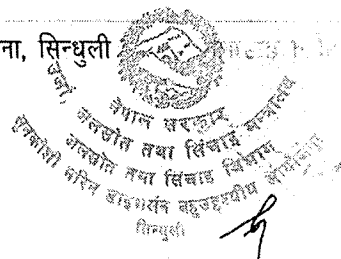 ना, सिन्धुली
नेपाल सरकार
ऊर्जा, जलस्रोत तथा सिंचाइ मन्त्रालय
जलस्रोत तथा सिंचाइ विभाग
सुनकोशी मरिन डाइभर्सन बहुउद्देश्यीय आयोजना
सिन्धुली